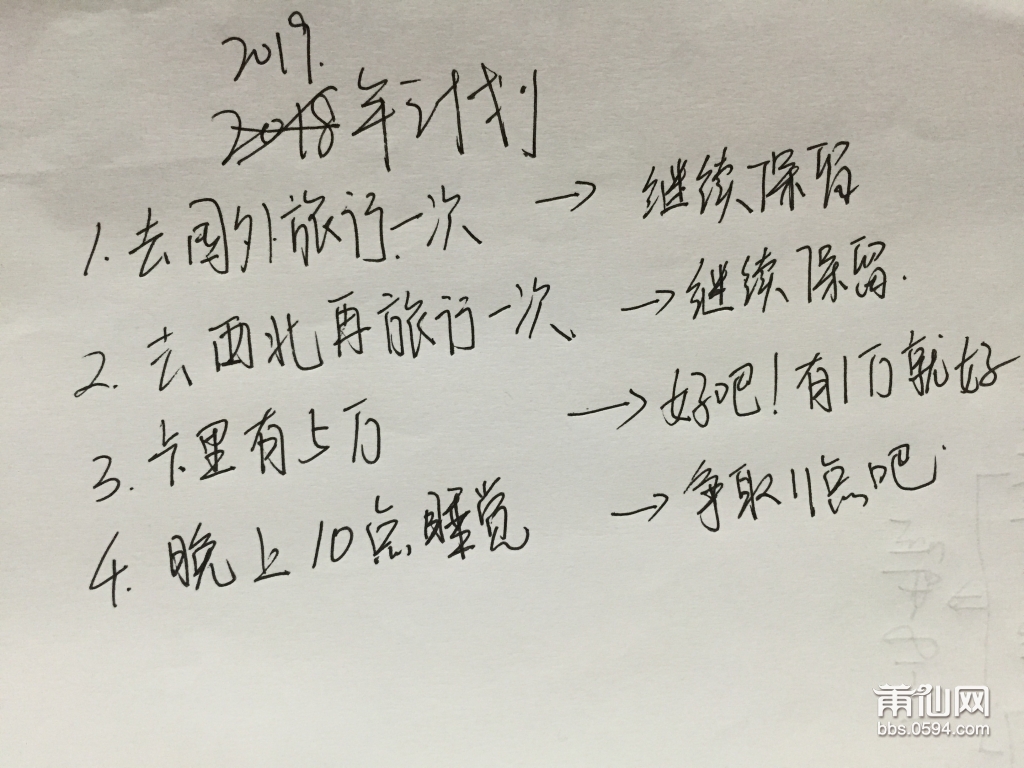 2019.
2018年计划
1. 去国外旅行一次 → 继续保留
2. 去西北再旅行一次 → 继续保留.
3. 卡里有5万 → 好吧！有1万就好
4. 晚上10点睡觉 → 争取11点吧.
莆仙网
bbs.0594.com